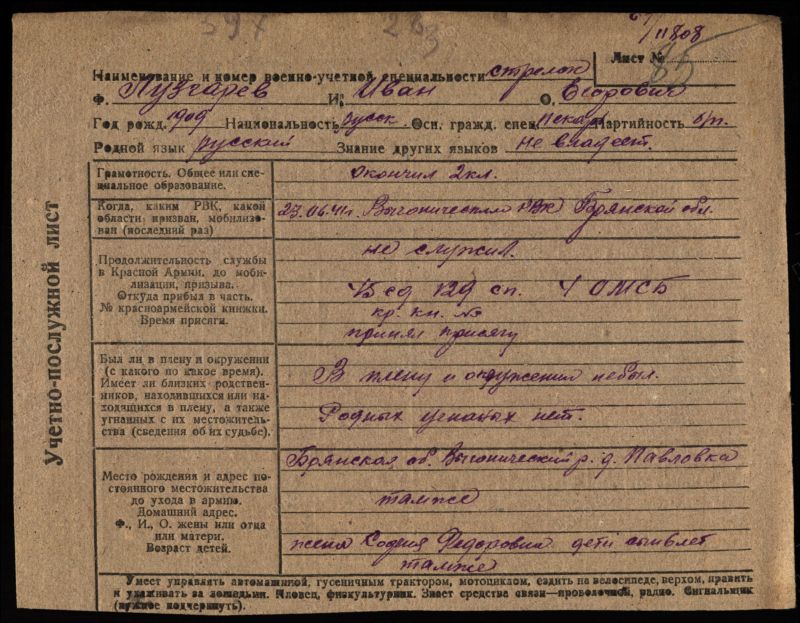 597 263
11808
Лист № 85
Наименование и номер военно-учетной специальности стрелок
Ф. Лузгарев И. Иван О. Егорович
Год рожд. 1909 Национальность русск. Осн. гражд. спец. пекарь Партийность б/п.
Родной язык русский Знание других языков не владеет.
Учетно-послужной лист
Грамотность. Общее или специальное образование.
окончил 2 кл.
Когда, каким РВК, какой
области призван, мобилизо-
ван (последний раз)
23.06.41г. Выгоническим РВК Брянской обл.
Продолжительность службы
в Красной Армии, до моби-
лизации, призыва.
Откуда прибыл в часть.
№ красноармейской книжки.
Время присяги.
не служил.
129 сп. 4 ОМСБ
кр. кн. №
принял присягу
Был ли в плену и окружении
(с какого по какое время).
Имеет ли близких родствен-
ников, находившихся или на-
ходящихся в плену, а также
угнанных с их местожитель-
ства (сведения об их судьбе).
В плену и окружении небыл.
Родных угнаных нет.
Место рождения и адрес по-
стоянного местожительства
до ухода в армию.
Домашний адрес.
Ф., И., О. жены или отца
или матери.
Возраст детей.
Брянская об. Выгонический р. д. Павловка
тамже
жена София Федоровна дети
тамже
Умеет управлять автомашиной, гусеничным трактором, мотоциклом, ездить на велосипеде, верхом, править
и ухаживать за лошадьми. Пловец, физкультурник. Знает средства связи—проволочной, радио. Сигнальщик
(нужное подчеркнуть).